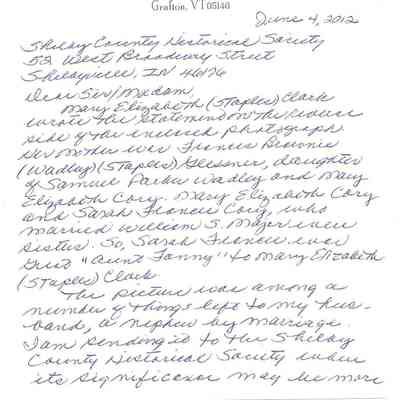 Grafton, VT 05146
June 4, 2012
Shelby County Historical Society
52 West Broadway Street
Shelbyville, IN 46176
Dear Sir/Madam,
Mary Elizabeth (Staples) Clark
wrote the statement on the reverse
side of the enclosed photograph
Her mother was Frances Brownie
(Wadley) (Staples) Glessner, daughter
of Samuel Parker Wadley and Mary
Elizabeth Cory. Mary Elizabeth Cory
and Sarah Francis Cory, who
married William S. Major were
sisters. So, Sarah Francis was
Great "Aunt Fanny" to Mary Elizabeth
(Staples) Clark.
The picture was among a
number of things left to my hus-
band, a nephew by marriage.
I am sending it to the Shelby
County Historical Society where
its significance may be more